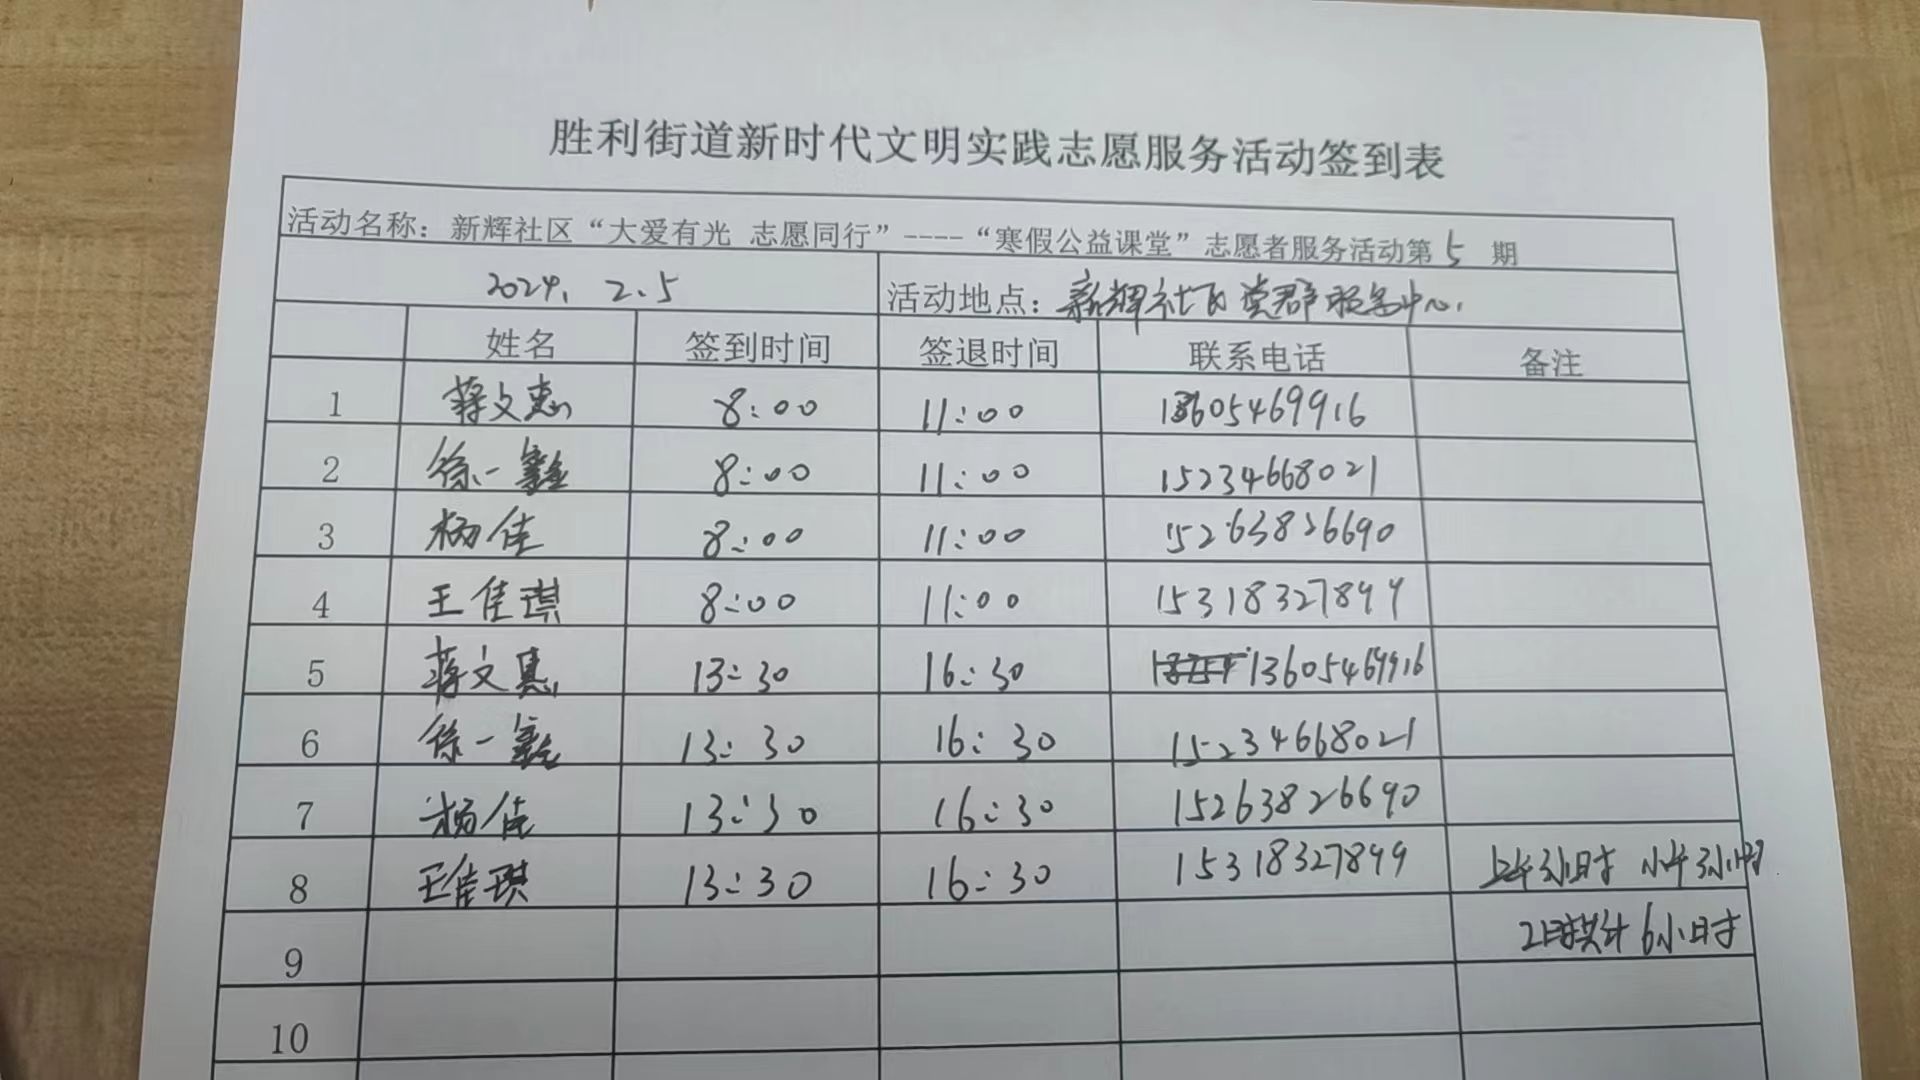 胜利街道新时代文明实践志愿服务活动签到表
活动名称：新辉社区“大爱有光 志愿同行”----“寒假公益课堂”志愿者服务活动第 5 期
2024. 2.5 活动地点：新辉社区党群服务中心.
姓名 签到时间 签退时间 联系电话 备注
1 蒋文惠 8:00 11:00 13605469916
2 徐一鑫 8:00 11:00 15234668021
3 杨佳 8:00 11:00 15263826690
4 王佳琪 8:00 11:00 15318327899
5 蒋文惠 13:30 16:30 13605469916
6 徐一鑫 13:30 16:30 15234668021
7 杨佳 13:30 16:30 15263826690
8 王佳琪 13:30 16:30 15318327899 上午3小时 下午3小时
9 共计6小时
10